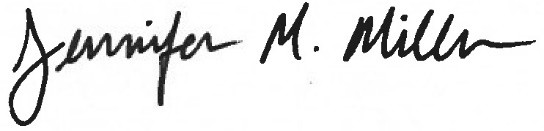 Jennifer M. Miller